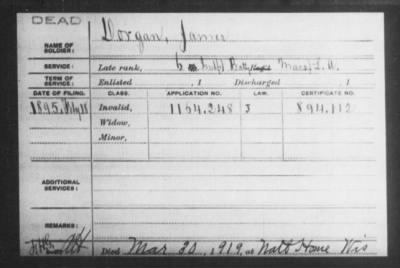 DEAD
NAME OF SOLDIER: Dorgan, James
SERVICE: Late rank, Batty Mass. L. A.
TERM OF SERVICE: Enlisted , 1 Discharged , 1
DATE OF FILING. CLASS. APPLICATION NO. LAW. CERTIFICATE NO.
1895, July Invalid, 1164.248 J 894.112
Widow,
Minor,
ADDITIONAL SERVICES:
REMARKS:
Died Mar 30, 1919, at Natl Home Wis